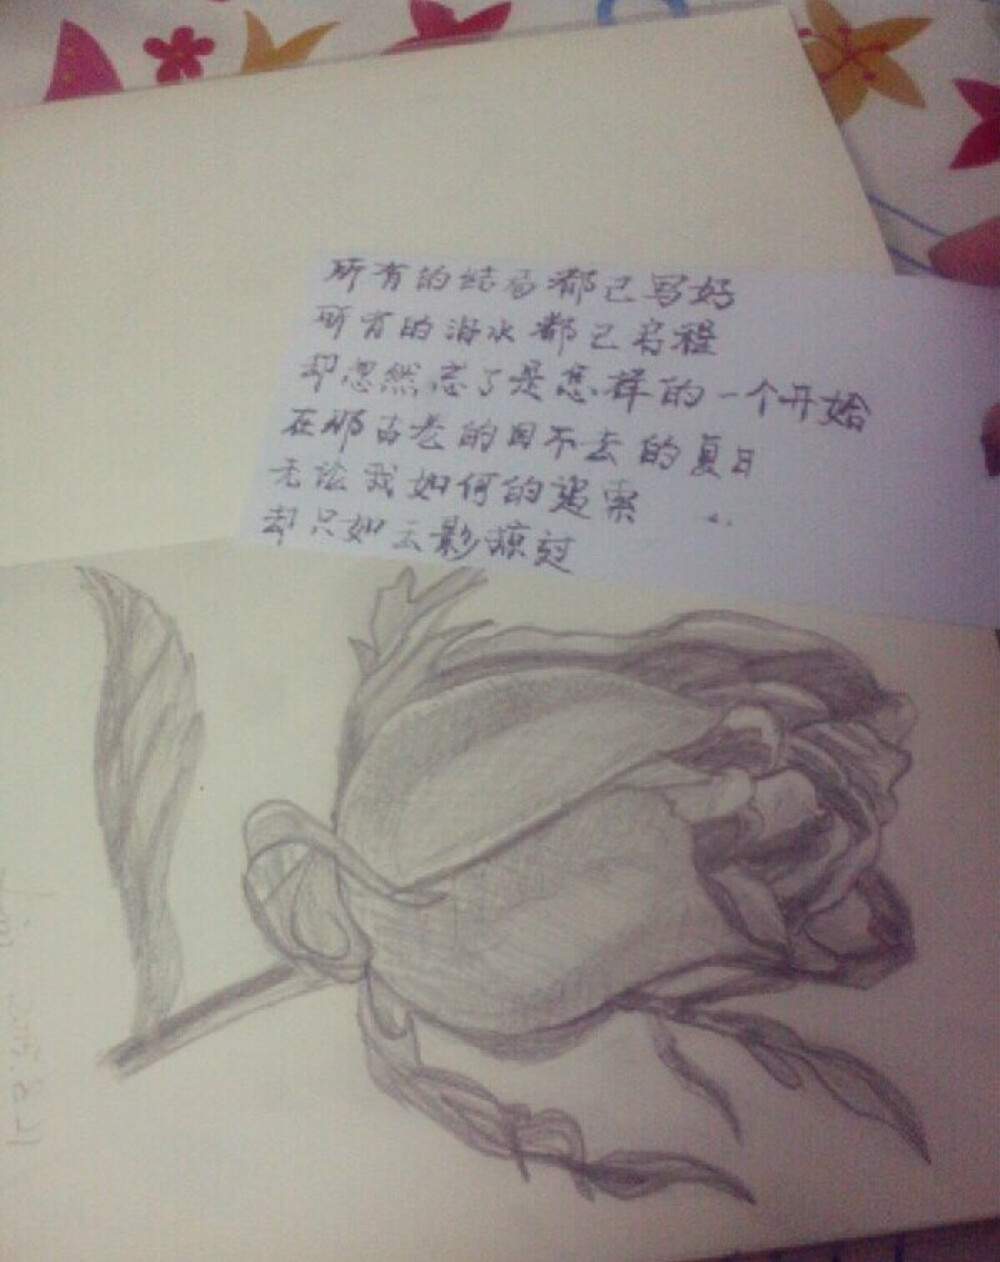 所有的结局都已写好
所有的泪水都已启程
却忽然忘了是怎样的一个开始
在那古老的回不去的夏日
无论我如何的追索
却只如云影掠过